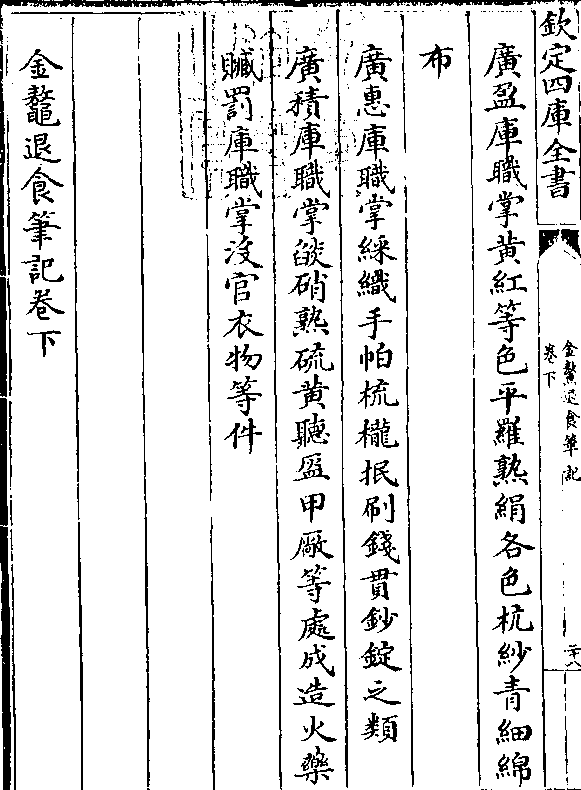 欽定四庫全書
金鰲退食筆記
卷下
二十八
廣盈庫職掌黃紅等色平羅熟絹各色杭紗青細綿
布
廣惠庫職掌綵織手帕梳櫳抿刷錢貫鈔錠之類
廣積庫職掌燄硝熟硫黃聽盔甲廠等處成造火藥
贓罰庫職掌沒官衣物等件
金鰲退食筆記卷下